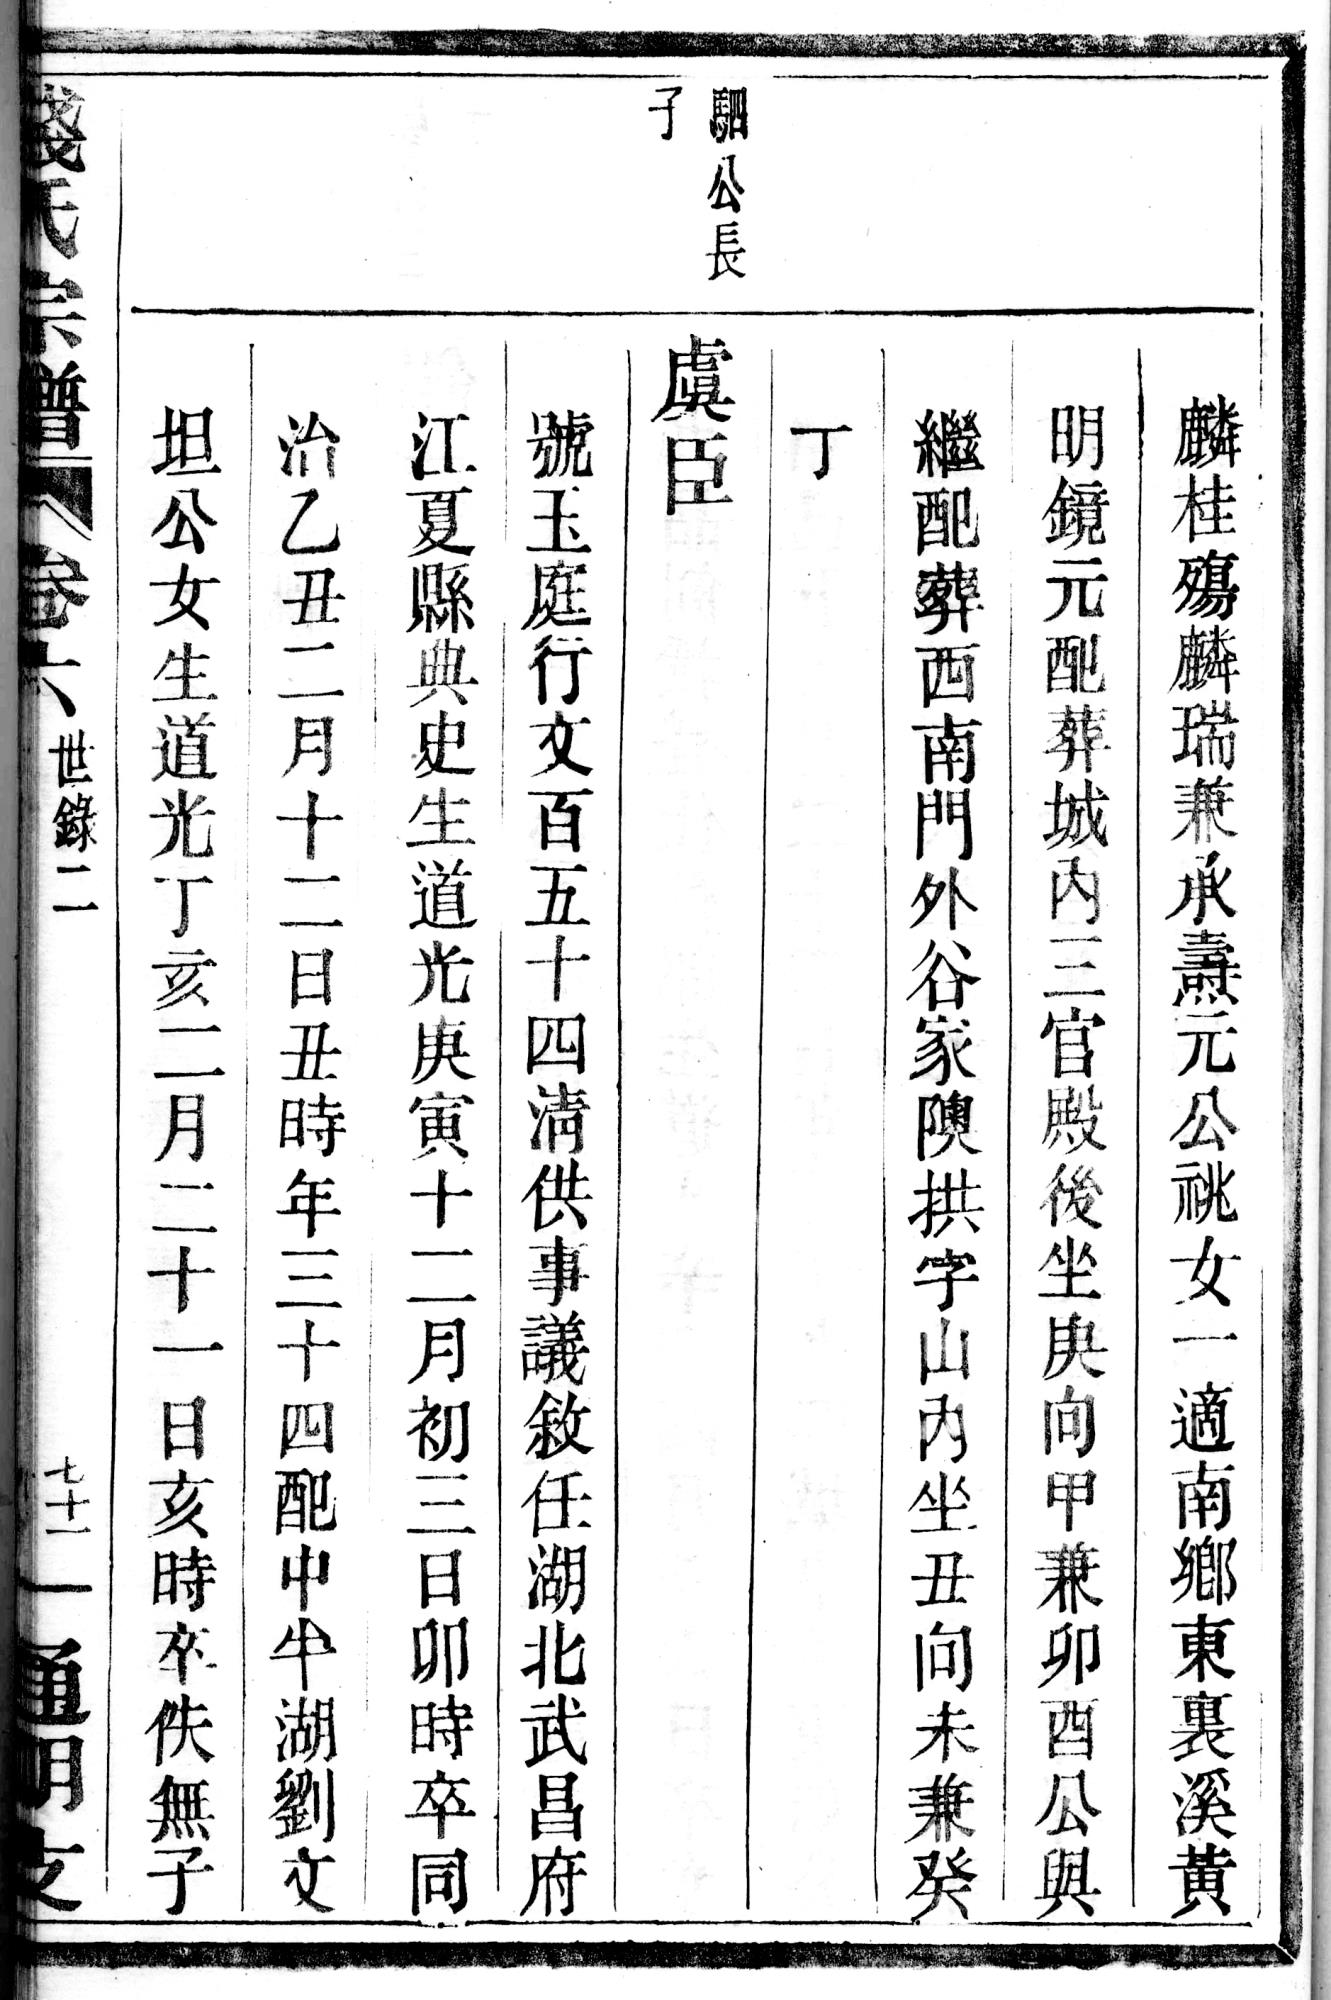 麟桂殤麟瑞兼承燾元公祧女一適南鄉東裏溪黃
明鏡元配葬城內三官殿後坐庚向甲兼卯酉公與
繼配葬西南門外谷家隩拱字山內坐丑向未兼癸
丁
駟公長
子
虞臣
號玉庭行文百五十四清供事議敘任湖北武昌府
江夏縣典史生道光庚寅十二月初三日卯時卒同
治乙丑二月十二日丑時年三十四配中牛湖劉文
坦公女生道光丁亥二月二十一日亥時卒佚無子
錢氏宗譜 卷六 世錄二 七十一 通明支